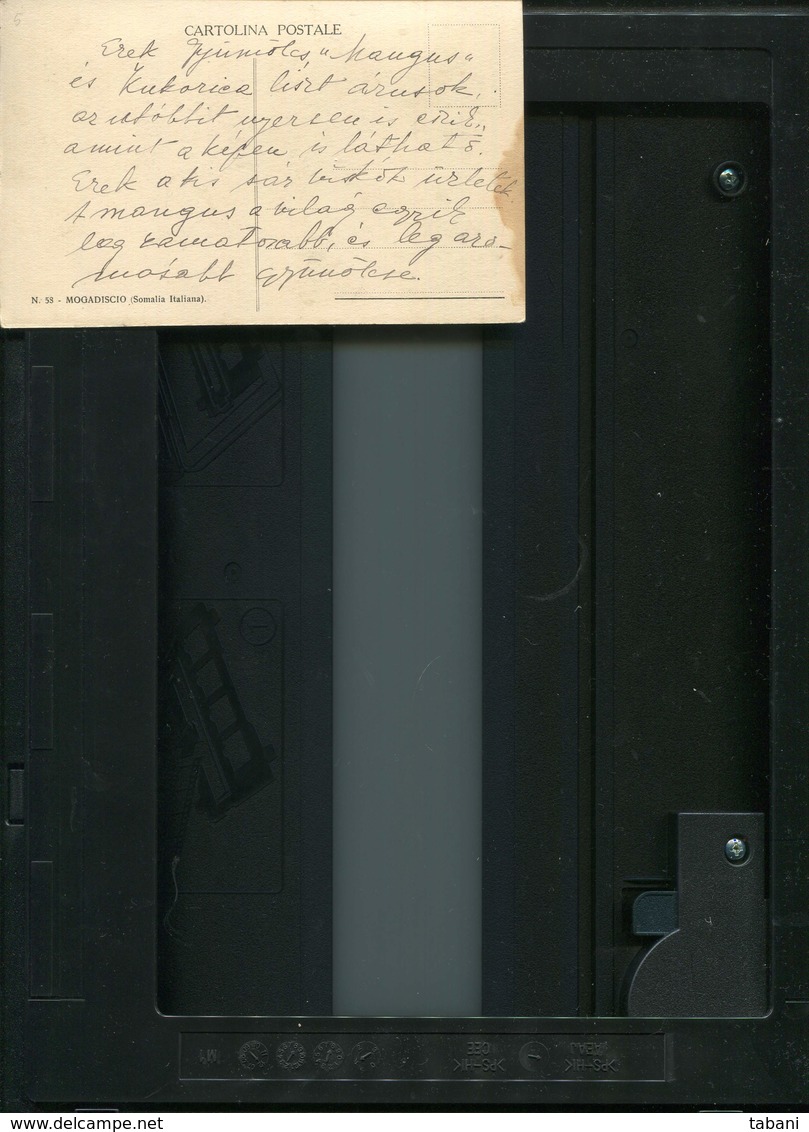 5
CARTOLINA POSTALE
Ezek Gyümölcs „Mangus"
és Kukorica liszt árusok,
az utóbbit nyersen is eszik,
amint a képen is látható.
Ezek a kis sár viskók üzletek.
A mangus a világ egyik
leg zamatosabb, és leg aro-
mósabb gyümölcse.
N. 58 - MOGADISCIO (Somalia Italiana).
>PS-HI<
>PS-HI<
CEE
M1
delcampe.net
tabani